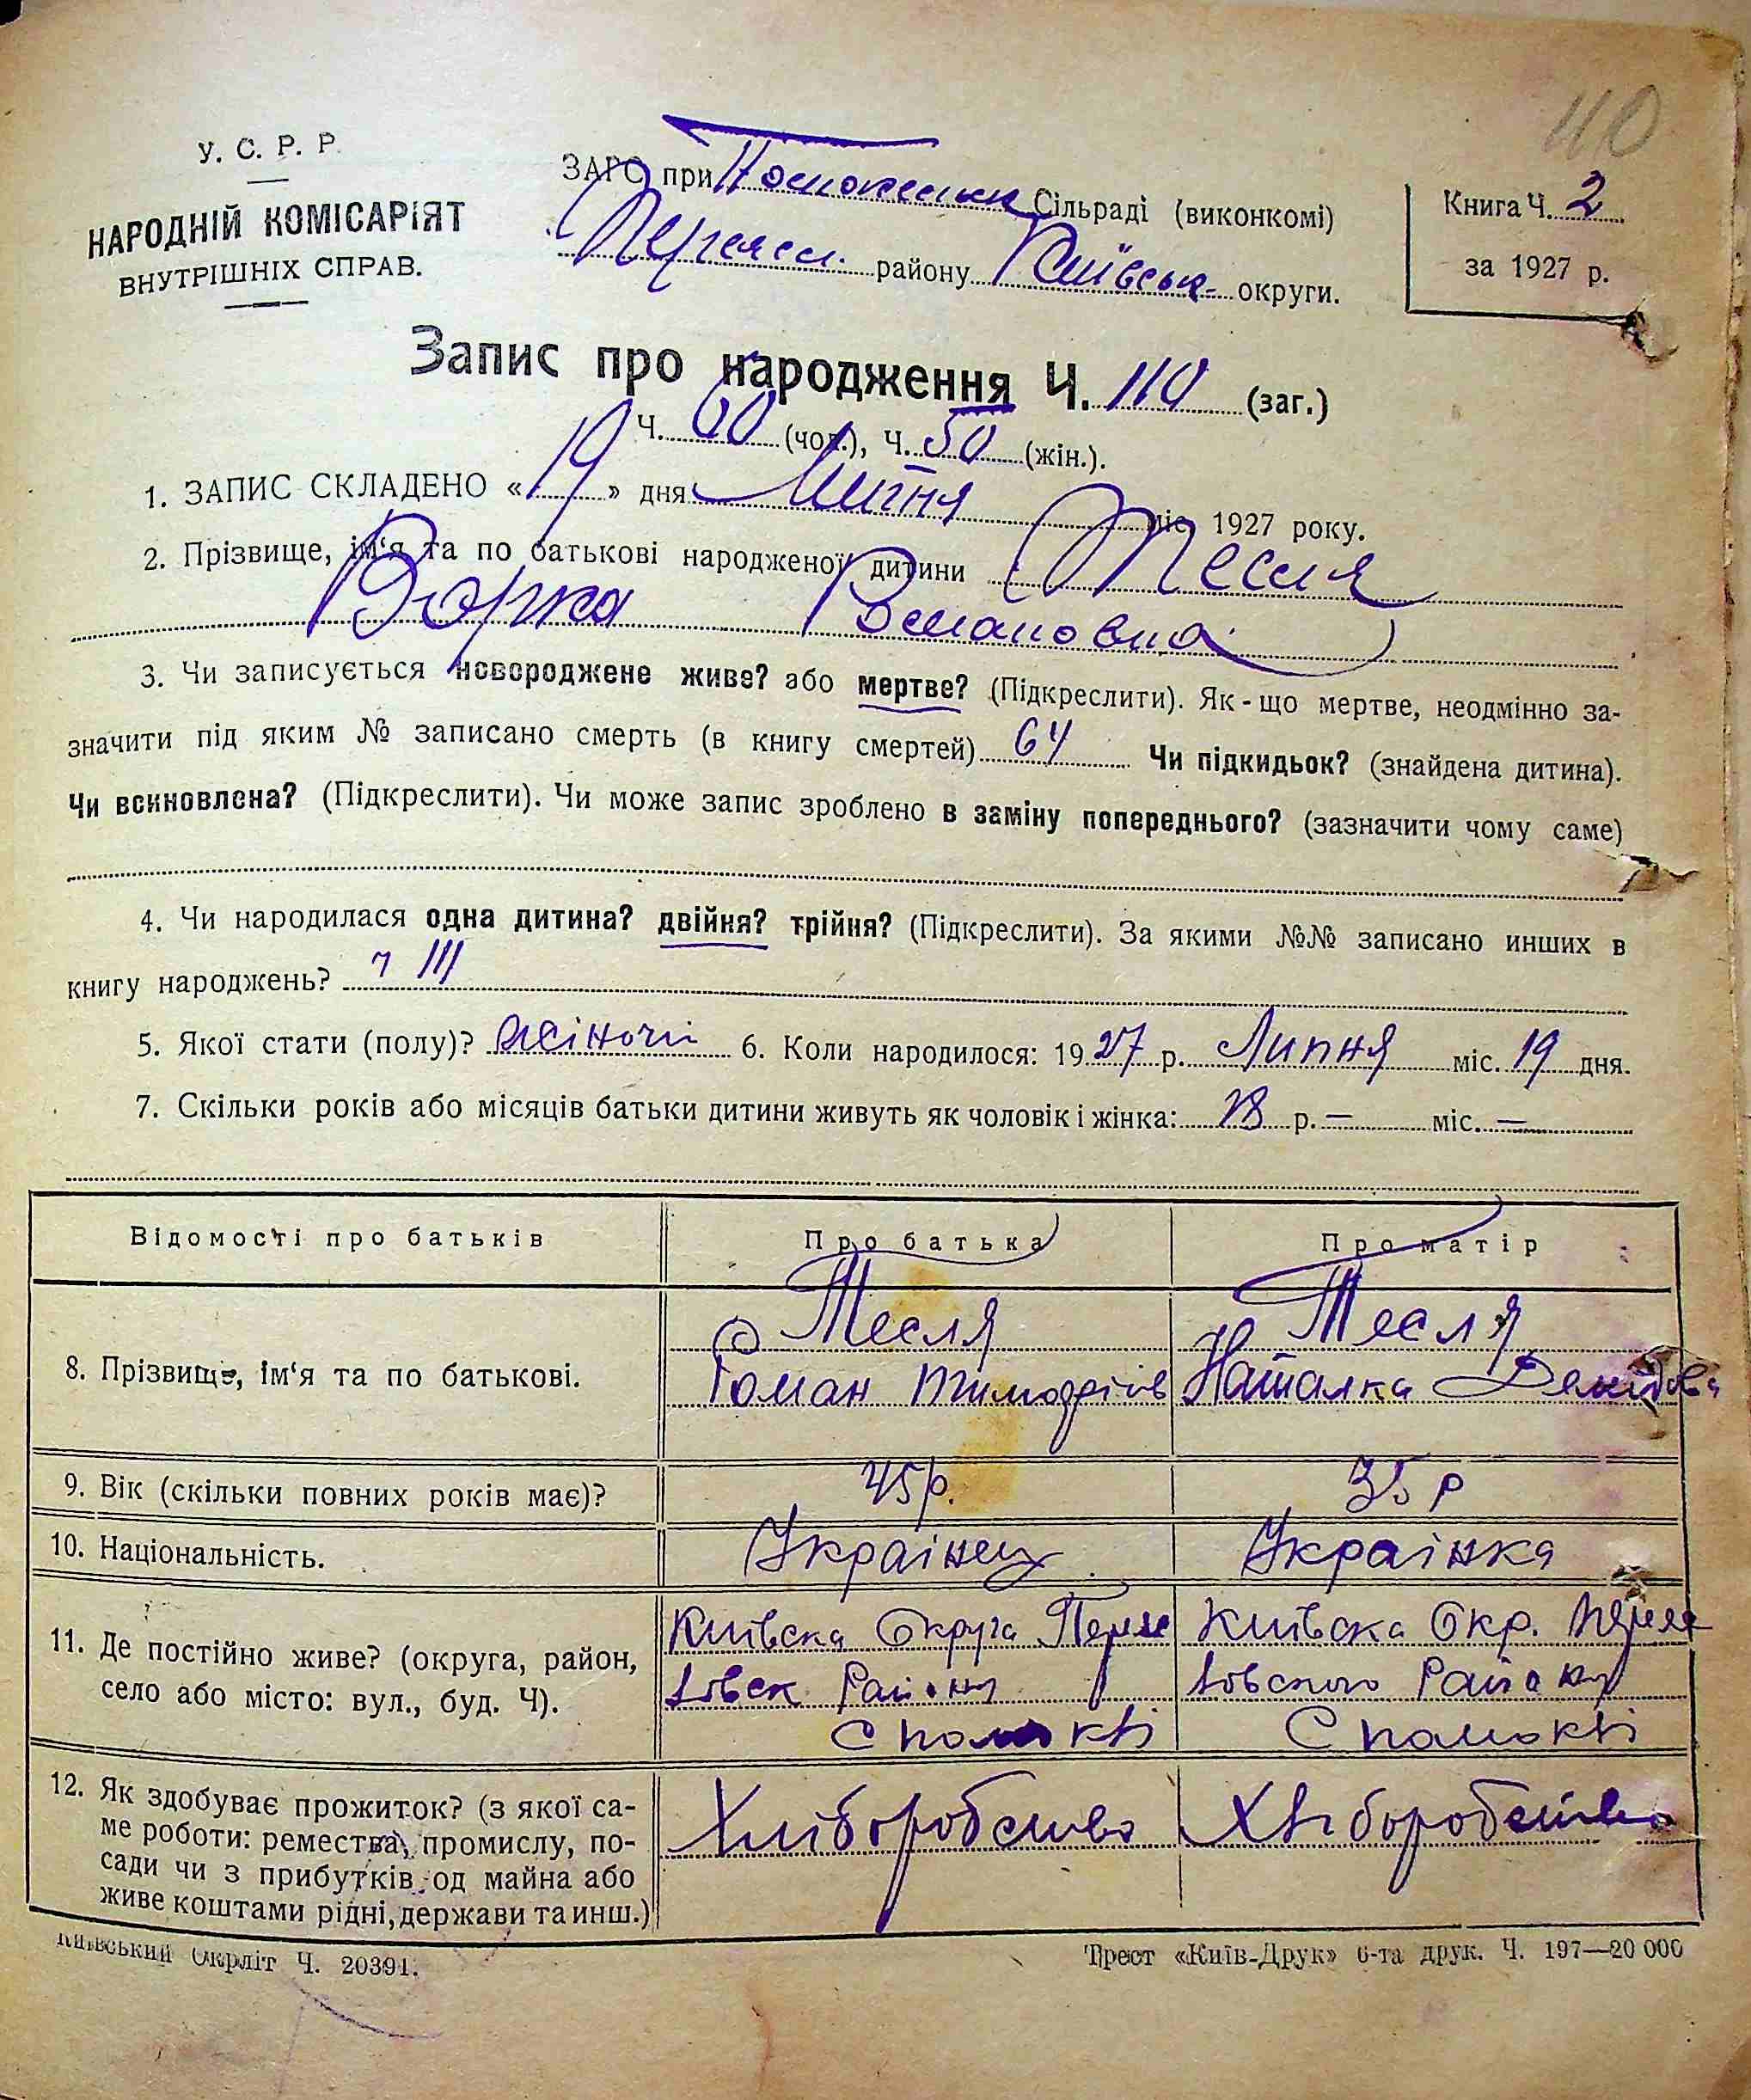 110
У. С. Р. Р.
НАРОДНІЙ КОМІСАРІЯТ
ВНУТРІШНІХ СПРАВ.
ЗАГС при Сільраді (виконкомі)
Переясл. району Київськ. округи.
Книга Ч. 2
за 1927 р.
Запис про народження Ч. 110 (заг.)
Ч. 60 (чол.), Ч. 50 (жін.).
1. ЗАПИС СКЛАДЕНО «19» дня Липня міс. 1927 року.
2. Прізвище, ім‘я та по батькові народженої дитини Тесля
Варка Романовна
3. Чи записується новороджене живе? або мертве? (Підкреслити). Як-що мертве, неодмінно за-
значити під яким № записано смерть (в книгу смертей) 64 Чи підкидьок? (знайдена дитина).
Чи всиновлена? (Підкреслити). Чи може запис зроблено в заміну попереднього? (зазначити чому саме)
4. Чи народилася одна дитина? двійня? трійня? (Підкреслити). За якими №№ записано инших в
книгу народжень? ч 111
5. Якої стати (полу)? жіночі 6. Коли народилося: 1927 р. Липня міс. 19 дня.
7. Скільки років або місяців батьки дитини живуть як чоловік і жінка: р. — міс. —
Відомості про батьків Про батька Про матір
Тесля Тесля
8. Прізвище, ім‘я та по батькові. Роман Тимофіїв Наталка Демідова
9. Вік (скільки повних років має)? 45р. 35 р
10. Національність. Українец Українка
11. Де постійно живе? (округа, район,
село або місто: вул., буд. Ч).
Київска Округа Київска Окр.
Району Району
12. Як здобуває прожиток? (з якої са-
ме роботи: ремества, промислу, по-
сади чи з прибутків од майна або
живе коштами рідні, держави та инш.)
Хліборобство Хліборобство
Київський Окрліт Ч. 20391.
Трест «Київ-Друк» 6-та друк. Ч. 197—20 000